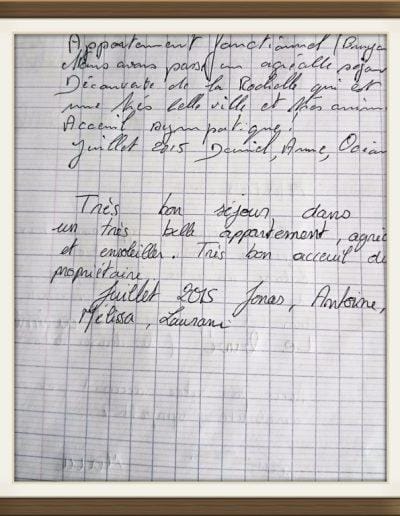 Appartement fonctionnel /
Nous avons passé un agréable séjour
Découverte de la Rochelle qui est
une très belle ville et très anim
Acceuil sympatique!
Juillet 2015 Daniel, Anne, Océan
Très bon séjour, dans
un très belle appartement, agré
et ensoleiller. Très bon acceuil de
propriétaire.
Juillet 2015 Jonas, Antoine,
Melissa,